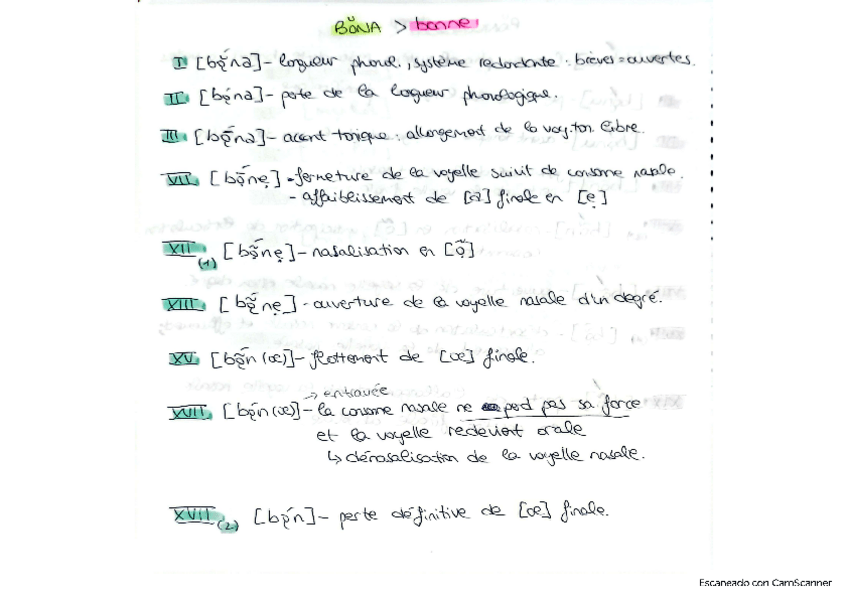 BŎNA > bonne
I [bǫ́na] - longueur phonol., système redondante : brèves = ouvertes.
II [bǫ́na] - perte de la longueur phonologique.
III [bǭ́na] - accent tonique : allongement de la voy. ton. libre.
VII [bọ̄́nẹ] - fermeture de la voyelle suivit de consonne nasale.
- affaiblissement de [a] finale en [ẹ]
XII (1) [bọ̃́nẹ] - nasalisation en [ọ̃]
XIII [bǫ̃́nẹ] - ouverture de la voyelle nasale d'un degré.
XV [bǫ̃́n(œ)] - flottement de [œ] finale.
→ entravée
XVII [bǫ́n(œ)] - la consonne nasale ne perd pas sa force
et la voyelle redevient orale
↳ dénasalisation de la voyelle nasale.
XVII (2) [bǫ́n] - perte définitive de [œ] finale.
Escaneado con CamScanner